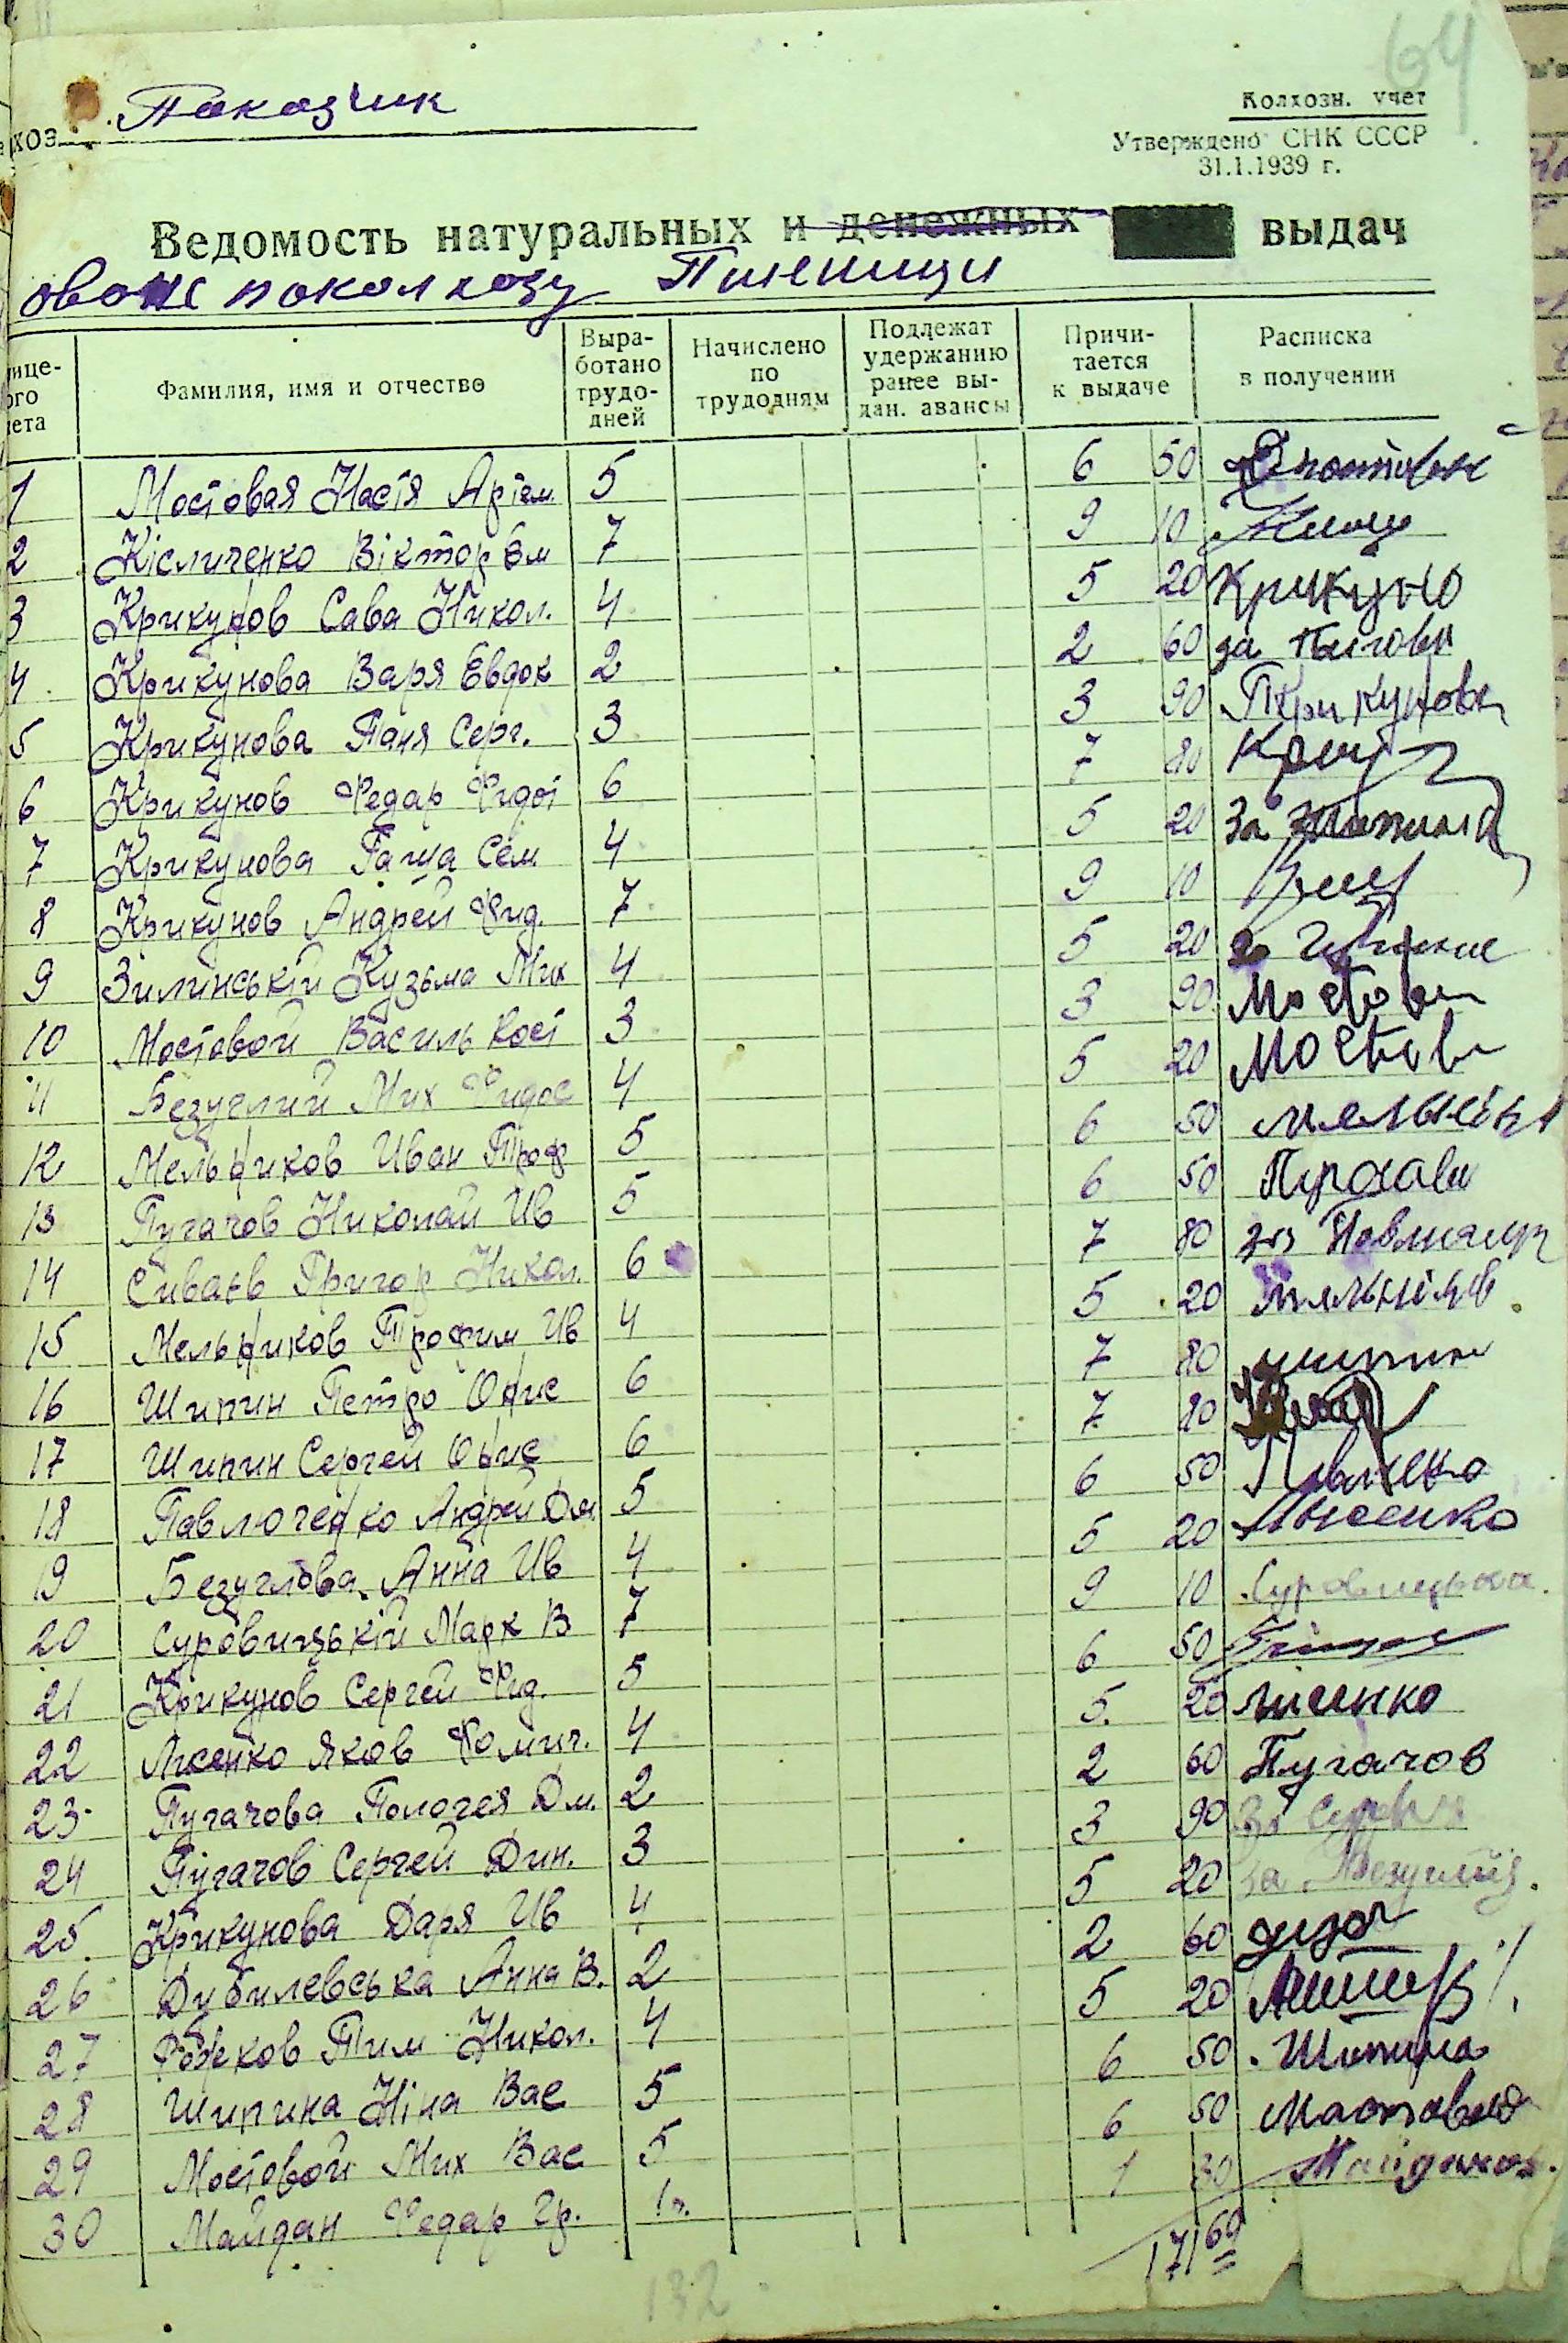 64
хоз Показчик
Колхозн. учет
Утверждено СНК СССР
31.1.1939 г.
Ведомость натуральных и денежных выдач
по колхозу Пшеници
Фамилия, имя и отчество
Выработано трудодней
Начислено по трудодням
Подлежат удержанию ранее выдан. авансы
Причитается к выдаче
Расписка в получении
1 Мостовая Настя Артем. 5 6 50
2 Кісличенко Віктор Ем 7 9 10
3 Крикунов Сава Никол. 4 5 20 Крикуно
4 Крикунова Варя Евдок 2 2 60 за
5 Крикунова Паня Серг. 3 3 90 Крикунова
6 Крикунов Федар 6 7 80
7 Крикунова Гаша Сем 4 5 20 За
8 Крикунов Андрей Фид. 7 9 10
9 Зилинський Кузьма Мих 4 5 20
10 Мостовой Василь Кост 3 3 90 Мостови
11 Безуглий Мих Фидос 4 5 20 Мостов
12 Мельников Иван Троф 5 6 50
13 Пугачов Николай Ив 5 6 50
14 Сиваєв Григор Никол. 6 7 80 за
15 Мельников Трофим Ив 4 5 20
16 Шипин Петро Онис 6 7 80 шипин
17 Шипин Сергей Онис 6 7 80
18 Павлюченко Андрей Дм 5 6 50
19 Безуглова Анна Ив 4 5 20
20 Суровицький Марк В 7 9 10 Суровицька
21 Крикунов Сергей Фид. 5 6 50
22 Лисенко Яков Фомич. 4 5 20 лисенко
23 Пугачова Пологея Дм. 2 2 60 Пугачов
24 Пугачов Сергей Дин. 3 3 90 За
25 Крикунова Даря Ив 4 5 20 за
26 Дубилевська Анна В. 2 2 60
27 Тим Никол. 4 5 20
28 Шипина Ніна Вас 5 6 50 Шипина
29 Мостовой Мих Вас 5 6 50 Мостовой
30 Майдан Федар Гр. 1 1 30
171 60
132